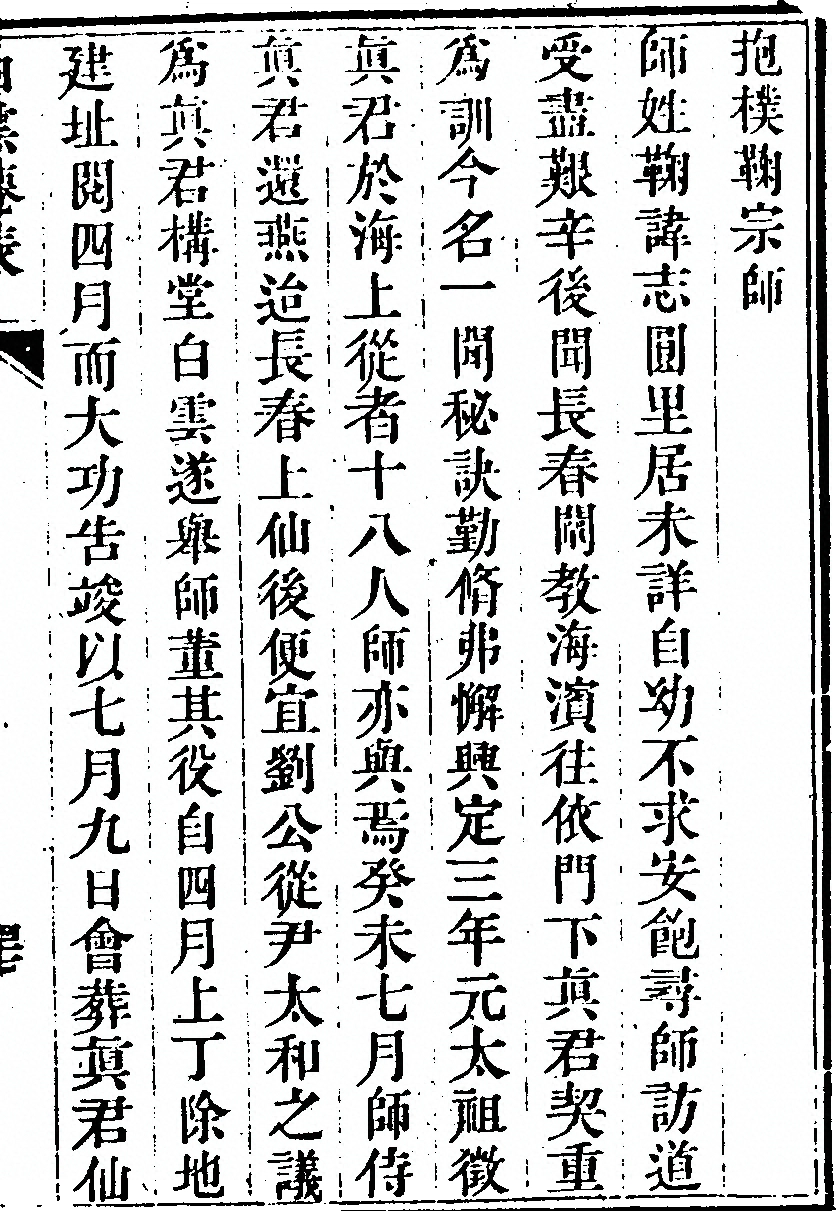 抱樸鞠宗師
師姓鞠諱志圓里居未詳自幼不求安飽尋師訪道
受盡艱辛後聞長春闡教海濱往依門下眞君契重
爲訓今名一聞秘訣勤脩弗懈興定三年元太祖徵
眞君於海上從者十八人師亦與焉癸未七月師侍
眞君還燕迨長春上仙後便宜劉公從尹太和之議
爲眞君構堂白雲遂舉師董其役自四月上丁除地
建址閱四月而大功告竣以七月九日會葬眞君仙